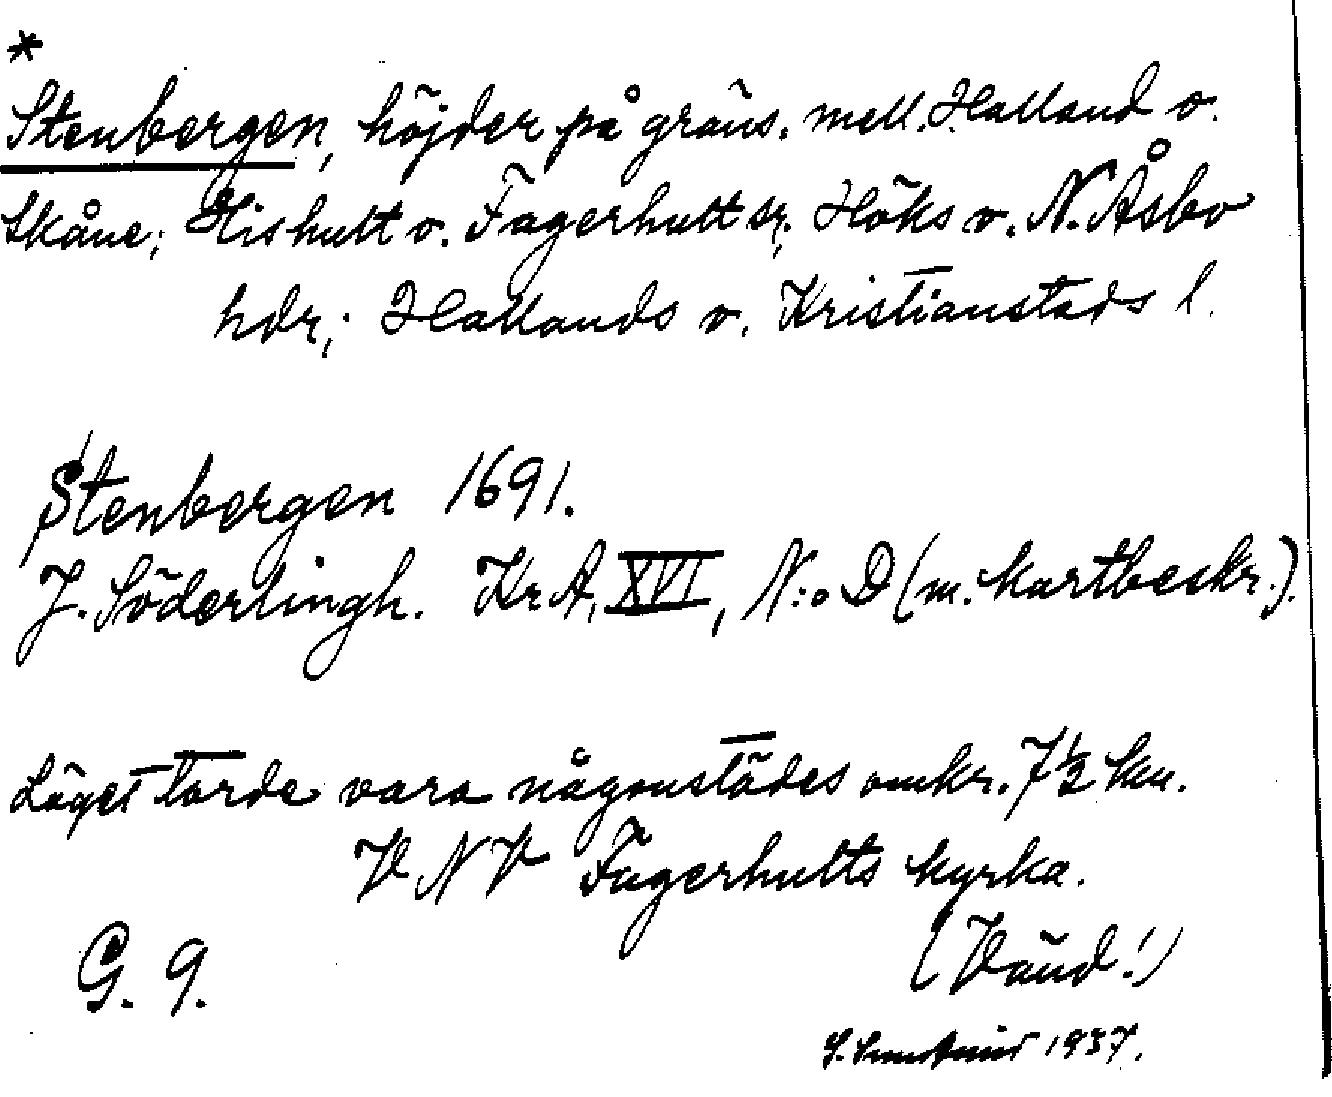 *
Stenbergen, höjder på gräns. mell. Halland o.
Skåne; Hishult o. Fagerhult sr; Höks o. N. Åsbo
hdr; Hallands o. Kristianstads l.
Stenbergen 1691.
J. Söderlingh. KrA, XVI, N:o D (m. kartbeskr.).
Läget torde vara någonstädes omkr. 7½ km.
VNV Fagerhults kyrka.
G. 9.
(Vänd!)
1937.